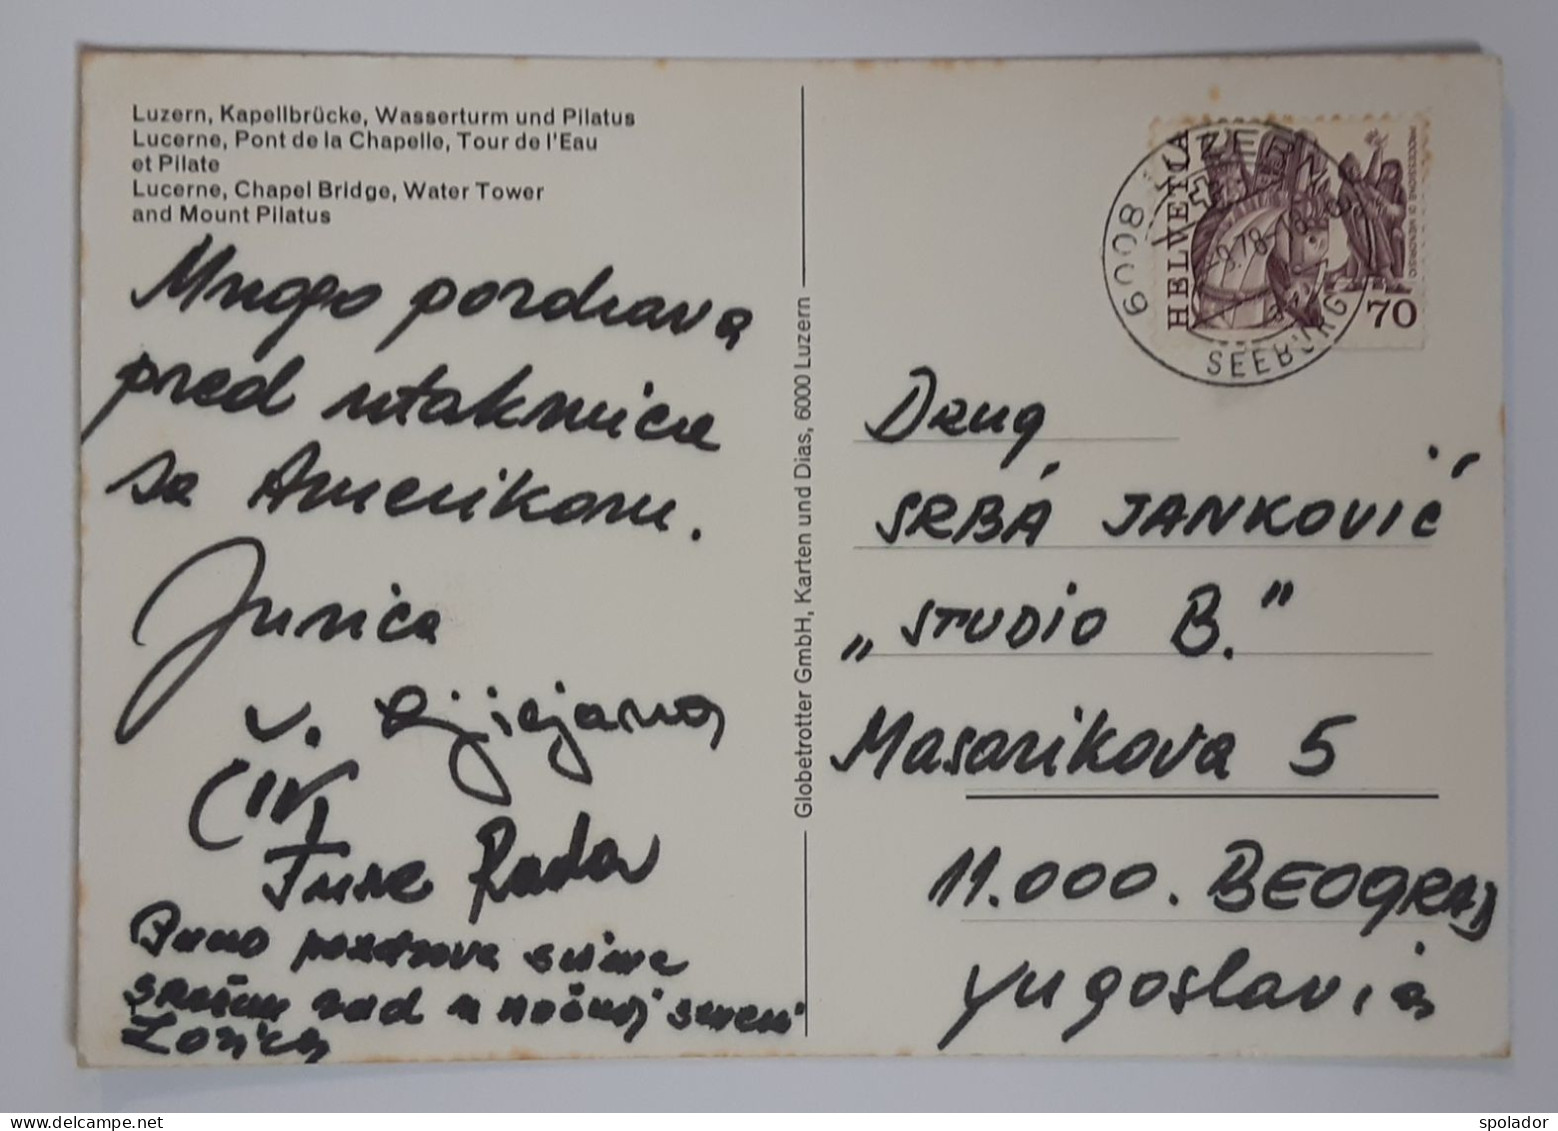 Luzern, Kapellbrücke, Wasserturm und Pilatus
Lucerne, Pont de la Chapelle, Tour de l'Eau
et Pilate
Lucerne, Chapel Bridge, Water Tower
and Mount Pilatus
Mnogo pozdrava
pred utakmicu
sa Amerikom.
Jurica
Rada
Puno pozdrava svima
srećan rad u noćnoj smeni
Zorica
Globetrotter GmbH, Karten und Dias, 6000 Luzern
HELVETIA
70
6008 LUZERN
SEEBURG
Drug
SRBA JANKOVIĆ
„STUDIO B."
Masarikova 5
11.000. BEOGRAD
Yugoslavia
spolador